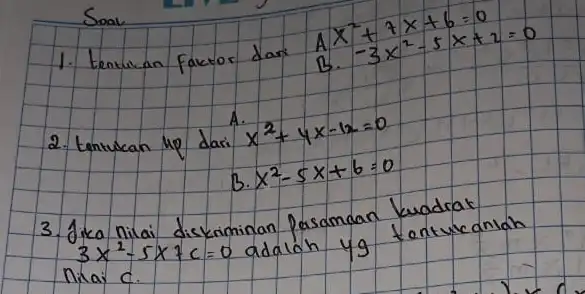 Soal
1. tentukan factor dari A x² + 7x + 6 = 0
B. -3x² - 5x + 2 = 0
A.
2. tentukan Hp dari x² + 4x - 12 = 0
B. x² - 5x + 6 = 0
3. jika nilai diskriminan Pasamaan kuadrat
3x² - 5x + c = 0 adalah 49 tentukanlah
nilai c.